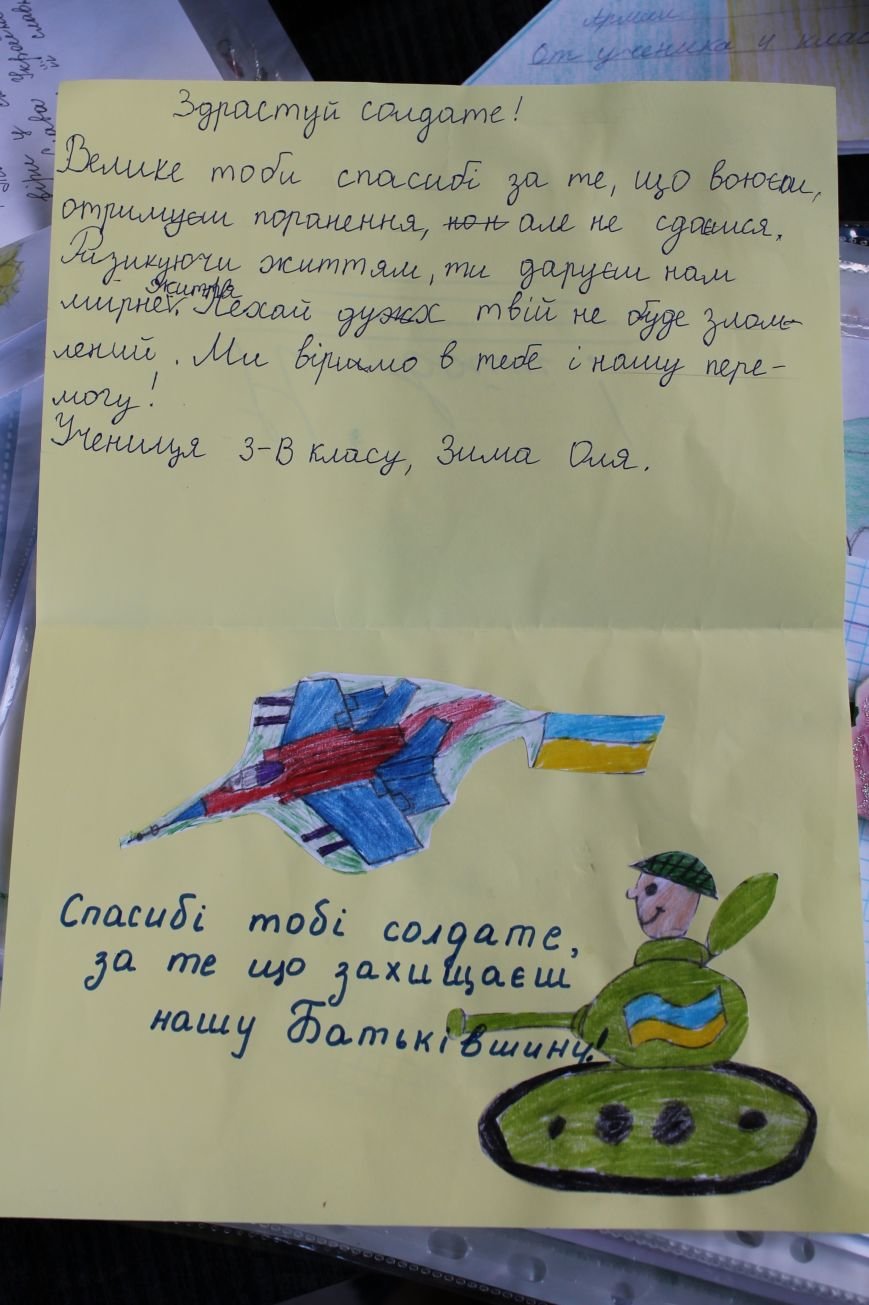 Армии
От ученика 4 клас
Здраствуй солдате!
Велике тоби спасибі за те, що воюєш,
отримуєш поранення, але не сдаєшся.
Ризикуючи життям, ти даруєш нам
життя
мирнеє. Нехай дух твій не буде злом-
лений. Ми віримо в тебе і нашу пере-
могу!
Учениця 3-В класу, Зима Оля.
Спасибі тобі солдате,
за те що захищаєш
нашу Батьківшину!